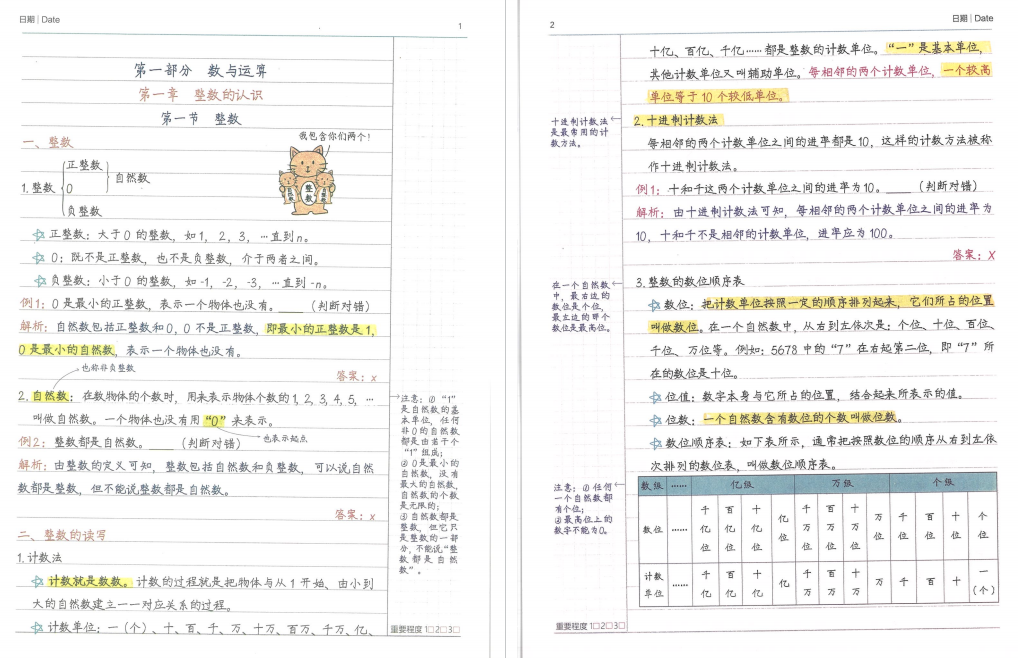 日期 | Date
1
第一部分 数与运算
第一章 整数的认识
第一节 整数
一、整数
我包含你们两个!
1. 整数
正整数
0
负整数
自然数
自然数
整数
自然数
☆ 正整数：大于 0 的整数，如 1，2，3，…直到 n。
☆ 0：既不是正整数，也不是负整数，介于两者之间。
☆ 负整数：小于 0 的整数，如 -1，-2，-3，…直到 -n。
例1：0 是最小的正整数，表示一个物体也没有。____（判断对错）
解析：自然数包括正整数和 0, 0 不是正整数，即最小的正整数是 1,
0 是最小的自然数，表示一个物体也没有。
也称非负整数
答案：x
2. 自然数：在数物体的个数时，用来表示物体个数的 1, 2, 3, 4, 5, …
叫做自然数。一个物体也没有用“0”来表示。
也表示起点
例2：整数都是自然数。____（判断对错）
解析：由整数的定义可知，整数包括自然数和负整数，可以说自然
数都是整数，但不能说整数都是自然数。
答案：x
二、整数的读写
1. 计数法
☆ 计数就是数数。计数的过程就是把物体与从 1 开始、由小到
大的自然数建立一一对应关系的过程。
☆ 计数单位：一（个）、十、百、千、万、十万、百万、千万、亿、
注意：① “1”
是自然数的基
本单位，任何
非0的自然数
都是由若干个
“1”组成；
② 0 是最小的
自然数，没有
最大的自然数，
自然数的个数
是无限的；
③ 自然数都是
整数，但它只
是整数的一部
分，不能说“整
数都是自然
数”。
重要程度 1□2□3□
2
日期 | Date
十亿、百亿、千亿……都是整数的计数单位。“一”是基本单位，
其他计数单位又叫辅助单位。每相邻的两个计数单位，一个较高
单位等于 10 个较低单位。
十进制计数法
是最常用的计
数方法。
2. 十进制计数法
每相邻的两个计数单位之间的进率都是 10，这样的计数方法被称
作十进制计数法。
例1：十和千这两个计数单位之间的进率为 10。____（判断对错）
解析：由十进制计数法可知，每相邻的两个计数单位之间的进率为
10，十和千不是相邻的计数单位，进率应为 100。
答案：X
3. 整数的数位顺序表
在一个自然数
中，最右边的
数位是个位，
最左边的那个
数位是最高位。
☆ 数位：把计数单位按照一定的顺序排列起来，它们所占的位置
叫做数位。在一个自然数中，从右到左依次是：个位、十位、百位、
千位、万位等。例如：5678 中的“7”在右起第二位，即“7”所
在的数位是十位。
☆ 位值：数字本身与它所占的位置，结合起来所表示的值。
☆ 位数：一个自然数含有数位的个数叫做位数。
☆ 数位顺序表：如下表所示，通常把按照数位的顺序从右到左依
次排列的数位表，叫做数位顺序表。
注意：① 任何
一个自然数都
有个位；
② 最高位上的
数字不能为0。
数级 …… 亿级 万级 个级
数位 …… 千亿位 百亿位 十亿位 亿位 千万位 百万位 十万位 万位 千位 百位 十位 个位
计数单位 …… 千亿 百亿 十亿 亿 千万 百万 十万 万 千 百 十 一（个）
重要程度 1□2□3□